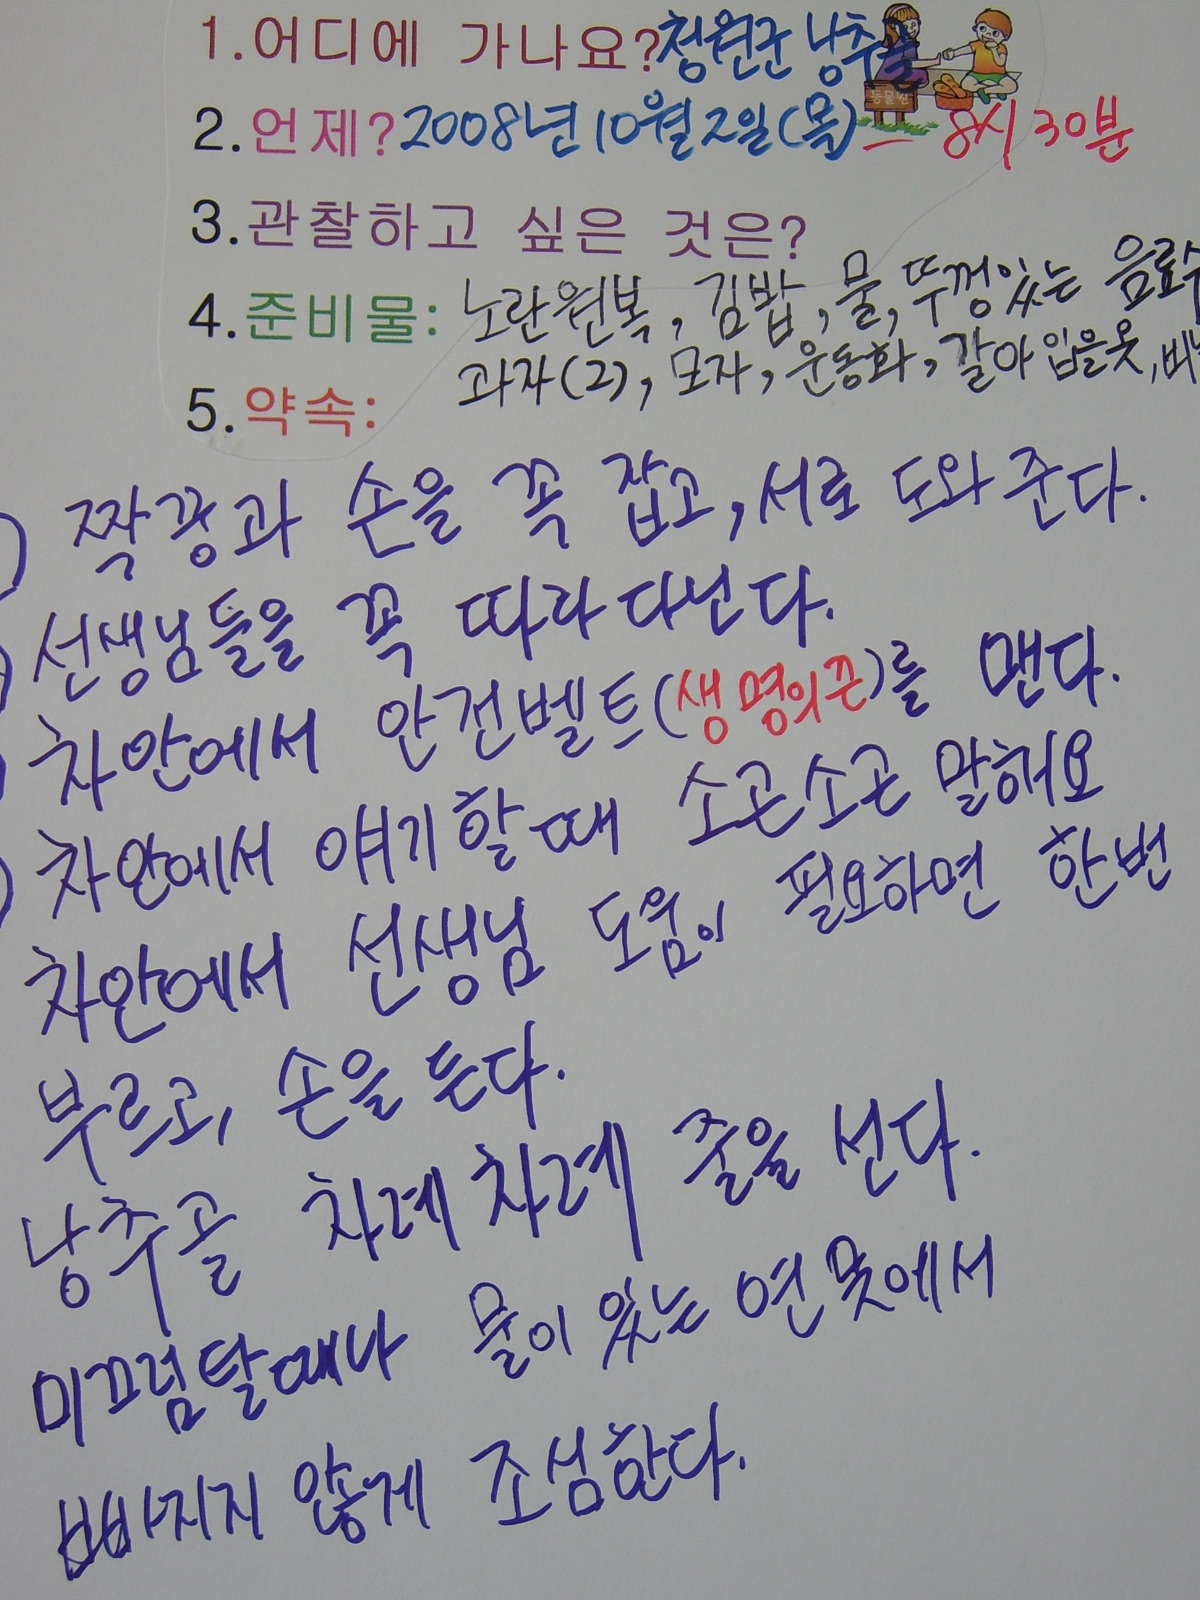 1.어디에 가나요?청원군 낭추골
2.언제?2008년 10월 2일(목) - 8시 30분
동물원
3.관찰하고 싶은 것은?
4.준비물: 노란원복, 김밥, 물, 뚜껑있는 음료수
과자(2), 모자, 운동화, 갈아입을옷,
5.약속:
짝꿍과 손을 꼭 잡고, 서로 도와 준다.
선생님들을 꼭 따라 다닌다.
차안에서 안전벨트(생명의끈)를 맨다.
차안에서 얘기할때 소곤소곤 말해요
차안에서 선생님 도움이 필요하면 한번
부르고, 손을 든다.
낭추골 차례차례 줄을 선다.
미끄럼탈때나 물이 있는 연못에서
빠지지 않게 조심한다.